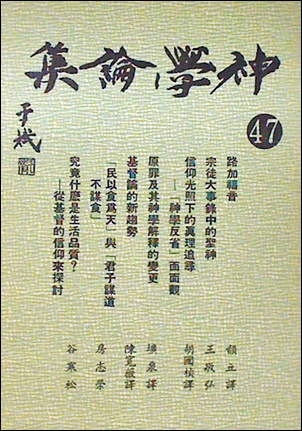 神學論集
于斌
47
路加福音
宗徒大事錄中的聖神
信仰光照下的真理追尋
——「神學反省」面面觀
原罪及其神學解釋的變更
基督論的新趨勢
「民以食為天」與「君子謀道
不謀食」
究竟什麼是生活品質?
——從基督的信仰來探討
顏立譯
王敬弘
胡國楨譯
陳寬薇譯
房志榮
谷寒松